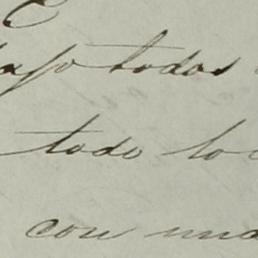 bajo todos
todo lo
con una